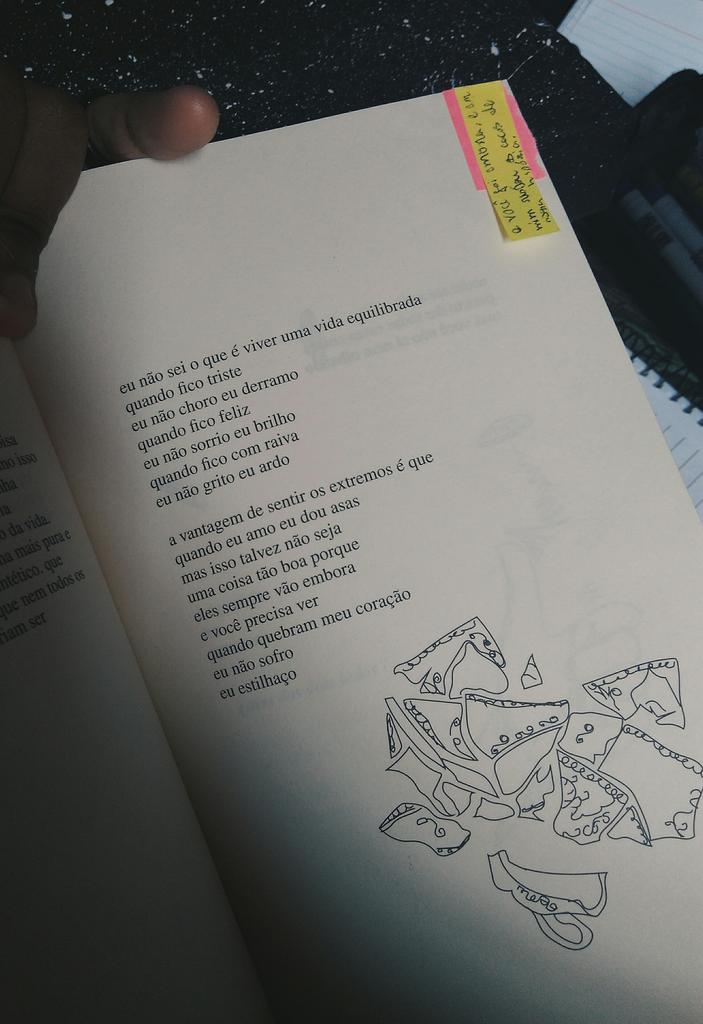 e você foi embora, e em
mim
eu não sei o que é viver uma vida equilibrada
quando fico triste
eu não choro eu derramo
quando fico feliz
eu não sorrio eu brilho
quando fico com raiva
eu não grito eu ardo
a vantagem de sentir os extremos é que
quando eu amo eu dou asas
mas isso talvez não seja
uma coisa tão boa porque
eles sempre vão embora
e você precisa ver
quando quebram meu coração
eu não sofro
eu estilhaço
mo isso
o da vida.
mais pura e
que
que nem todos os
ser